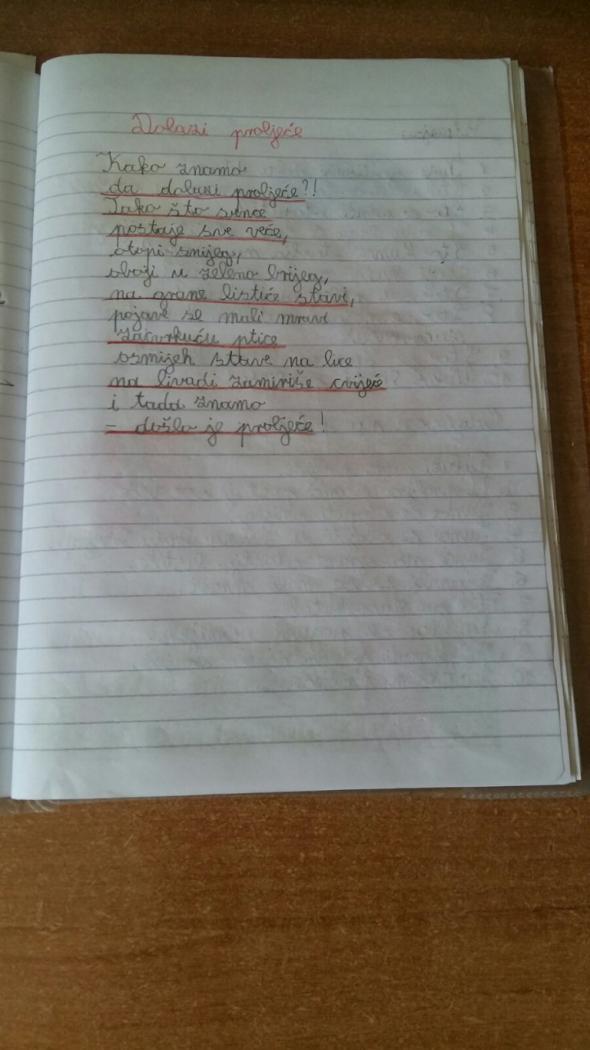 Dolazi proljeće
Kako znamo
da dolazi proljeće?!
Tako što sunce
postaje sve veće,
otopi snijeg,
oboji u zeleno brijeg,
na grane listiće stavi,
pojave se mali mravi
zacvrkuću ptice
osmijeh stave na lice
na livadi zamiriše cvijeće
i tada znamo
- došlo je proljeće!